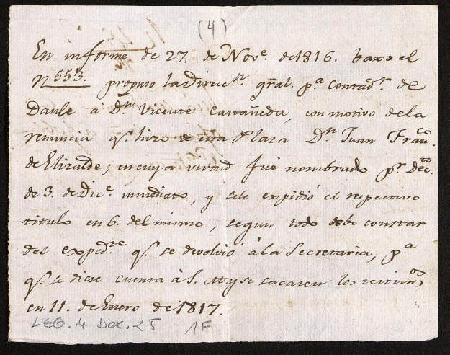 (4)
En informe de 27. de Nov.e de 1816. baxo el
N.o 553. propuso la Direc.n gral. p.a Contad.r de
Daule á D.n Vicente Castañeda, con motivo de la
renuncia q.e hizo de esta Plaza D.n Juan Fran.co
de Elizalde; en cuya virtud fue nombrado p.r dec.to
de 3. de Dic.e inmediato, y se le expidió el respectivo
titulo en 6. del mismo, segun todo debe constar
del exped.te q.e se devolvió á la Secretaria, p.a
q.e se diese cuenta á S. M. y se sacaren los
en 11. de Enero de 1817.
LEG. 4 DOC. 25 1F